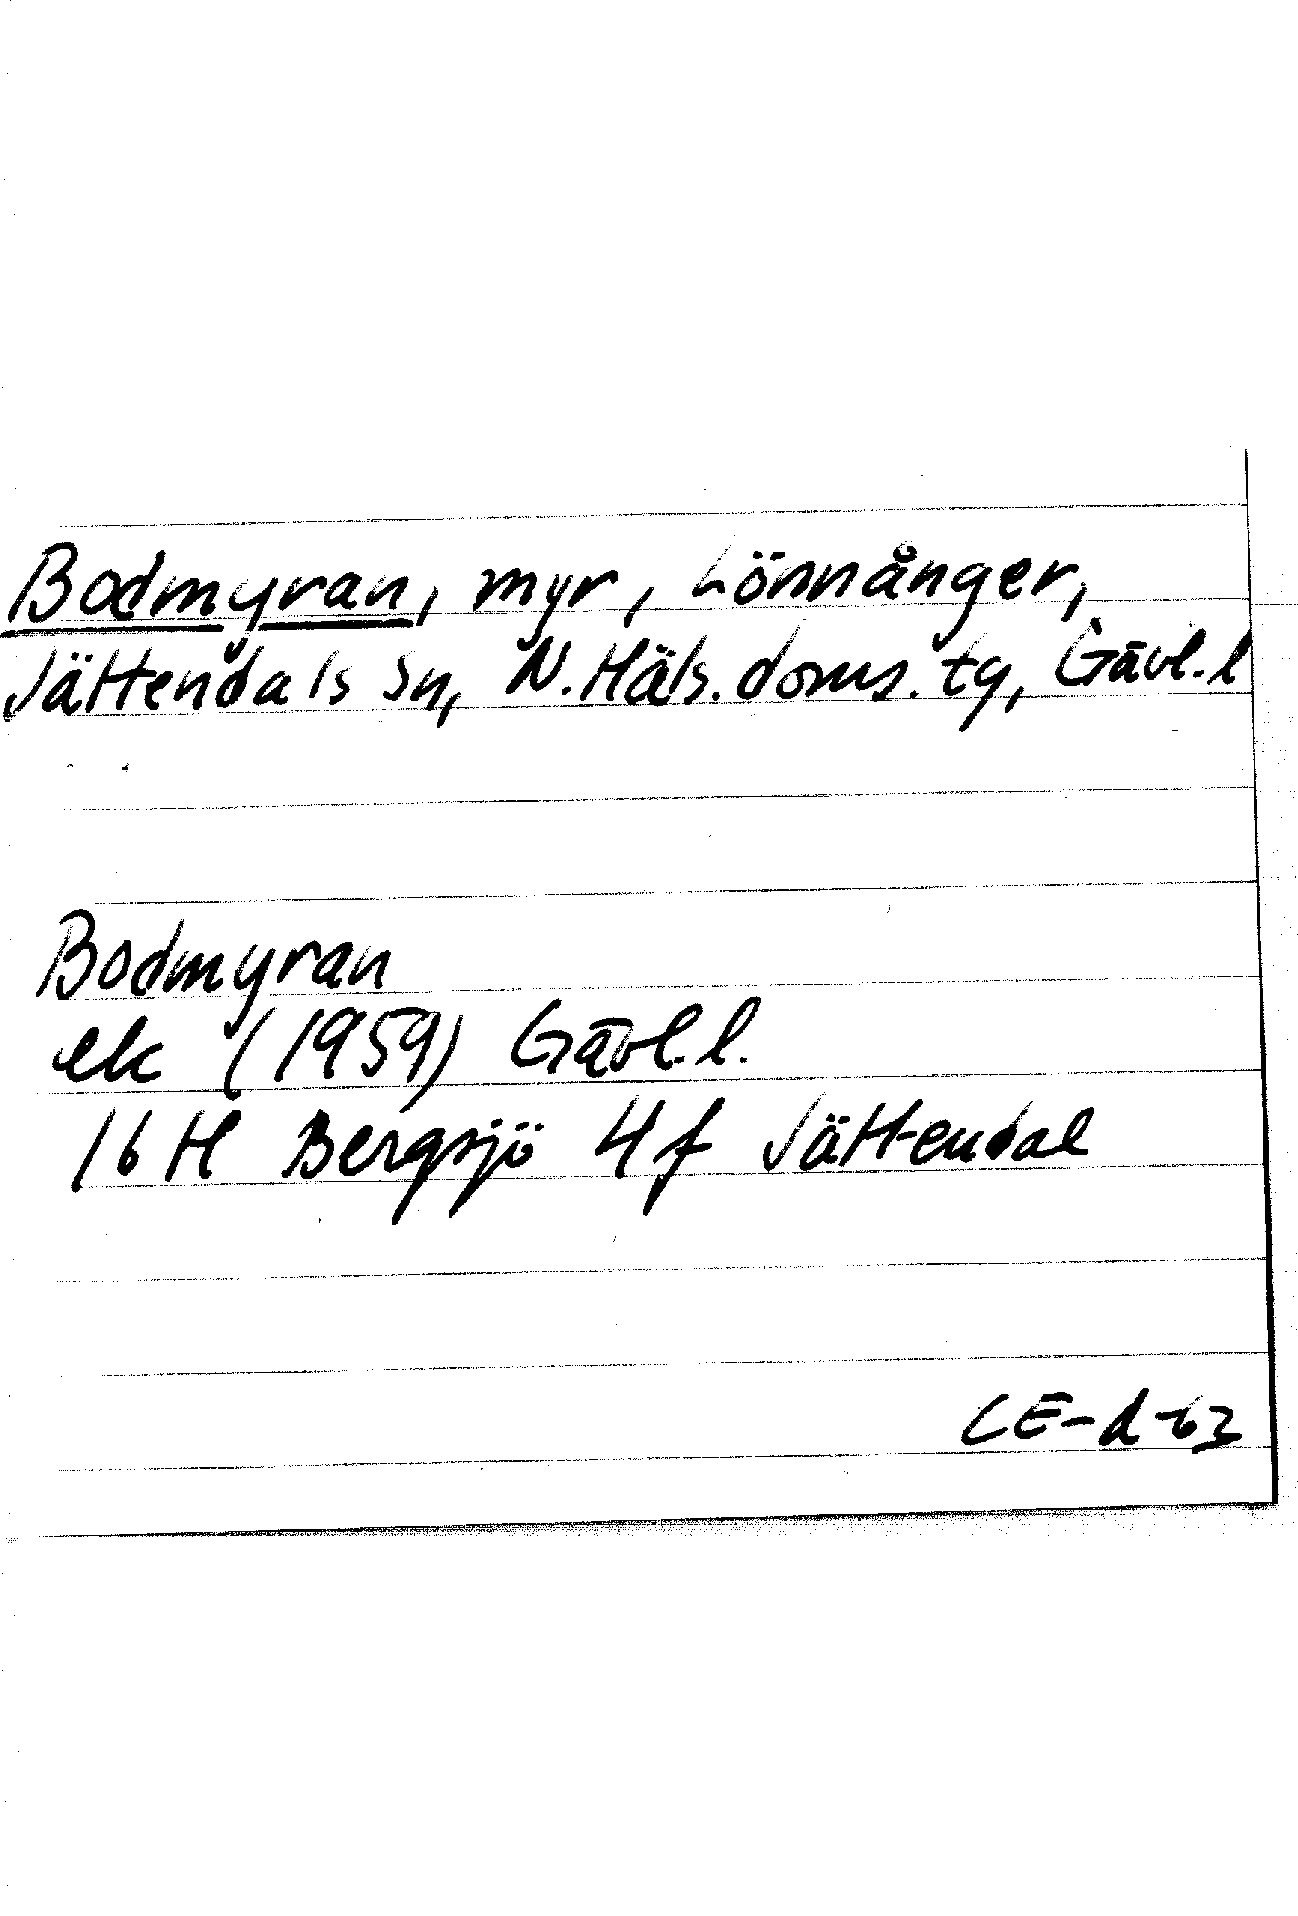 Bodmyran, myr, Lönnånger,
Jättendals sn, N. Häls. doms. tg, Gävl. l
Bodmyran
ek (1959) Gävl. l.
16 H Bergsjö 4 f Jättendal
CE-d-63